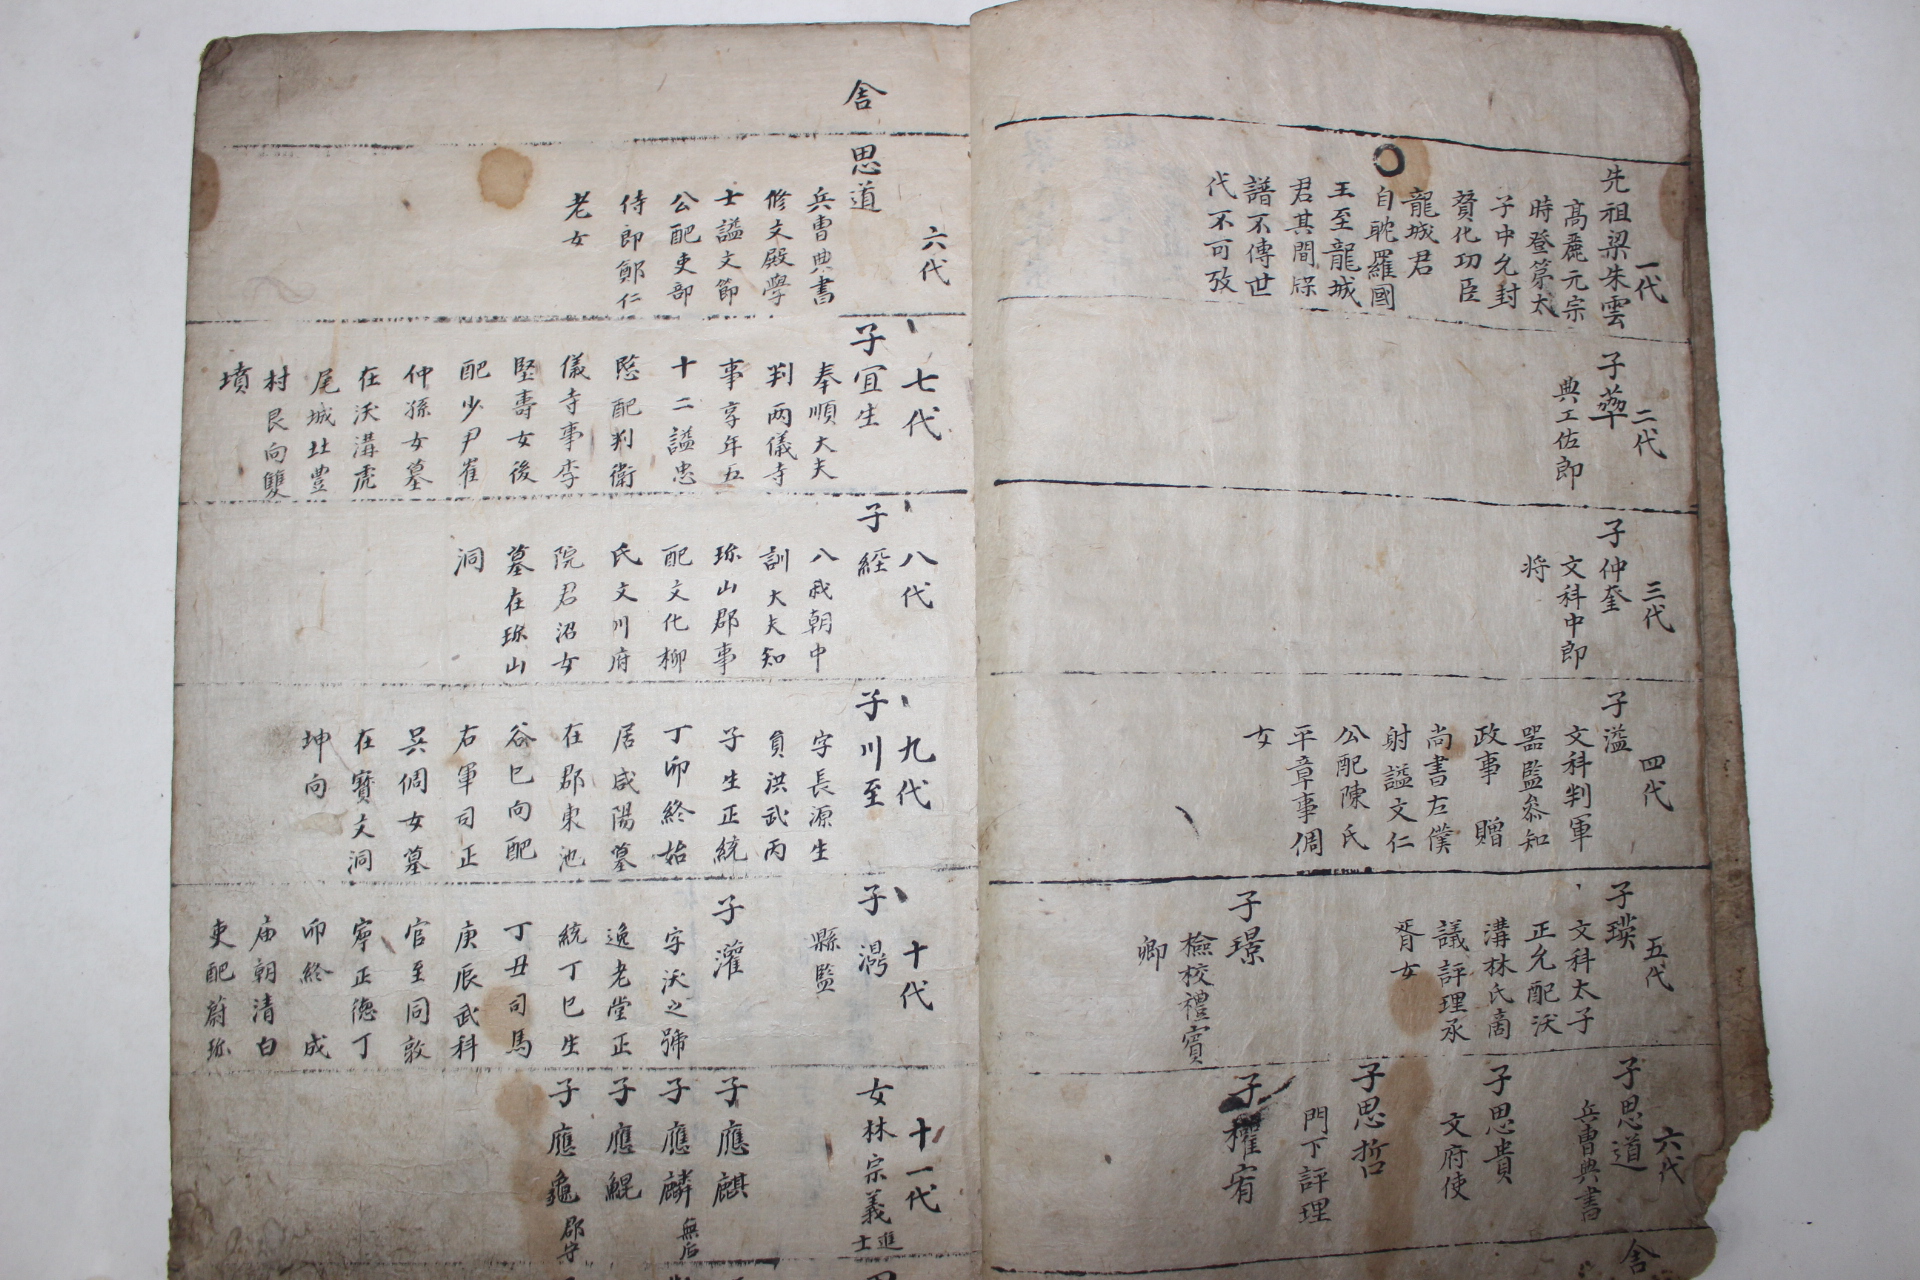 一代
先祖梁朱雲
高麗元宗
時登第太
子中允封
賛化功臣
龍城君
自耽羅國
王至龍城
君其間牒
譜不傳世
代不可攷
二代
子
典工佐郎
三代
子仲奎
文科中郎
将
四代
子溢
文科判軍
噐監叅知
政事 贈
尚書左僕
射謚文仁
公配陳氏
平章事倜
女
五代
子瑛
文科太子
正允配沃
溝林氏商
議評理承
胥女
子璟
檢校禮賓
卿
六代
子思道
兵曺典書
子思貴
文府使
子思哲
門下評理
子權宥
舍
舍
六代
思道
兵曺典書
修文殿學
士謚文節
公配吏部
侍郎鄭仁
老女
七代
子宜生
奉順大夫
判两儀寺
事享年五
十二謚忠
愍配判衛
儀寺事李
堅壽女後
配少尹崔
仲孫女墓
在沃溝虎
尾城北豊
村艮向雙
墳
八代
子經
八我朝中
訓大夫知
珎山郡事
配文化柳
氏文川府
院君沼女
墓在珎山
洞
九代
子川至
字長源生
負洪武丙
子生正統
丁卯終始
居咸陽墓
在郡東池
谷巳向配
右軍司正
吳倜女墓
在寶文洞
坤向
十代
子㵧
縣監
子灌
字沃之號
逸老堂正
統丁巳生
丁丑司馬
庚辰武科
官至同敦
寧正德丁
卯終 成
庙朝清白
吏配蔚珎
十一代
女林宗義進士
子應麒
子應麟無后
子應鯤
子應龜郡守